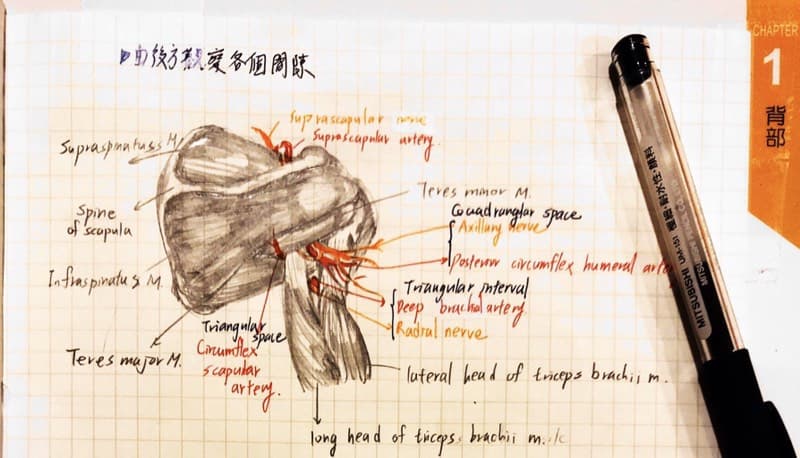 由後方觀察各個間隙
Suprascapular nerve
Suprascapular artery.
Supraspinatuss M.
Spine
of scapula
Infraspinatus M.
Teres major M.
Triangular
space
Circumflex
scapular
artery.
Teres minor M.
Quadranglar space
Axillary nerve
Posterior circumflex humeral artery
Triangular interval
Deep brachial artery
Radial nerve
lateral head of triceps brachii m.
long head of triceps brachii m.
CHAPTER
1
背部
MITSUBISHI UM-151 極細・耐水性・顏料